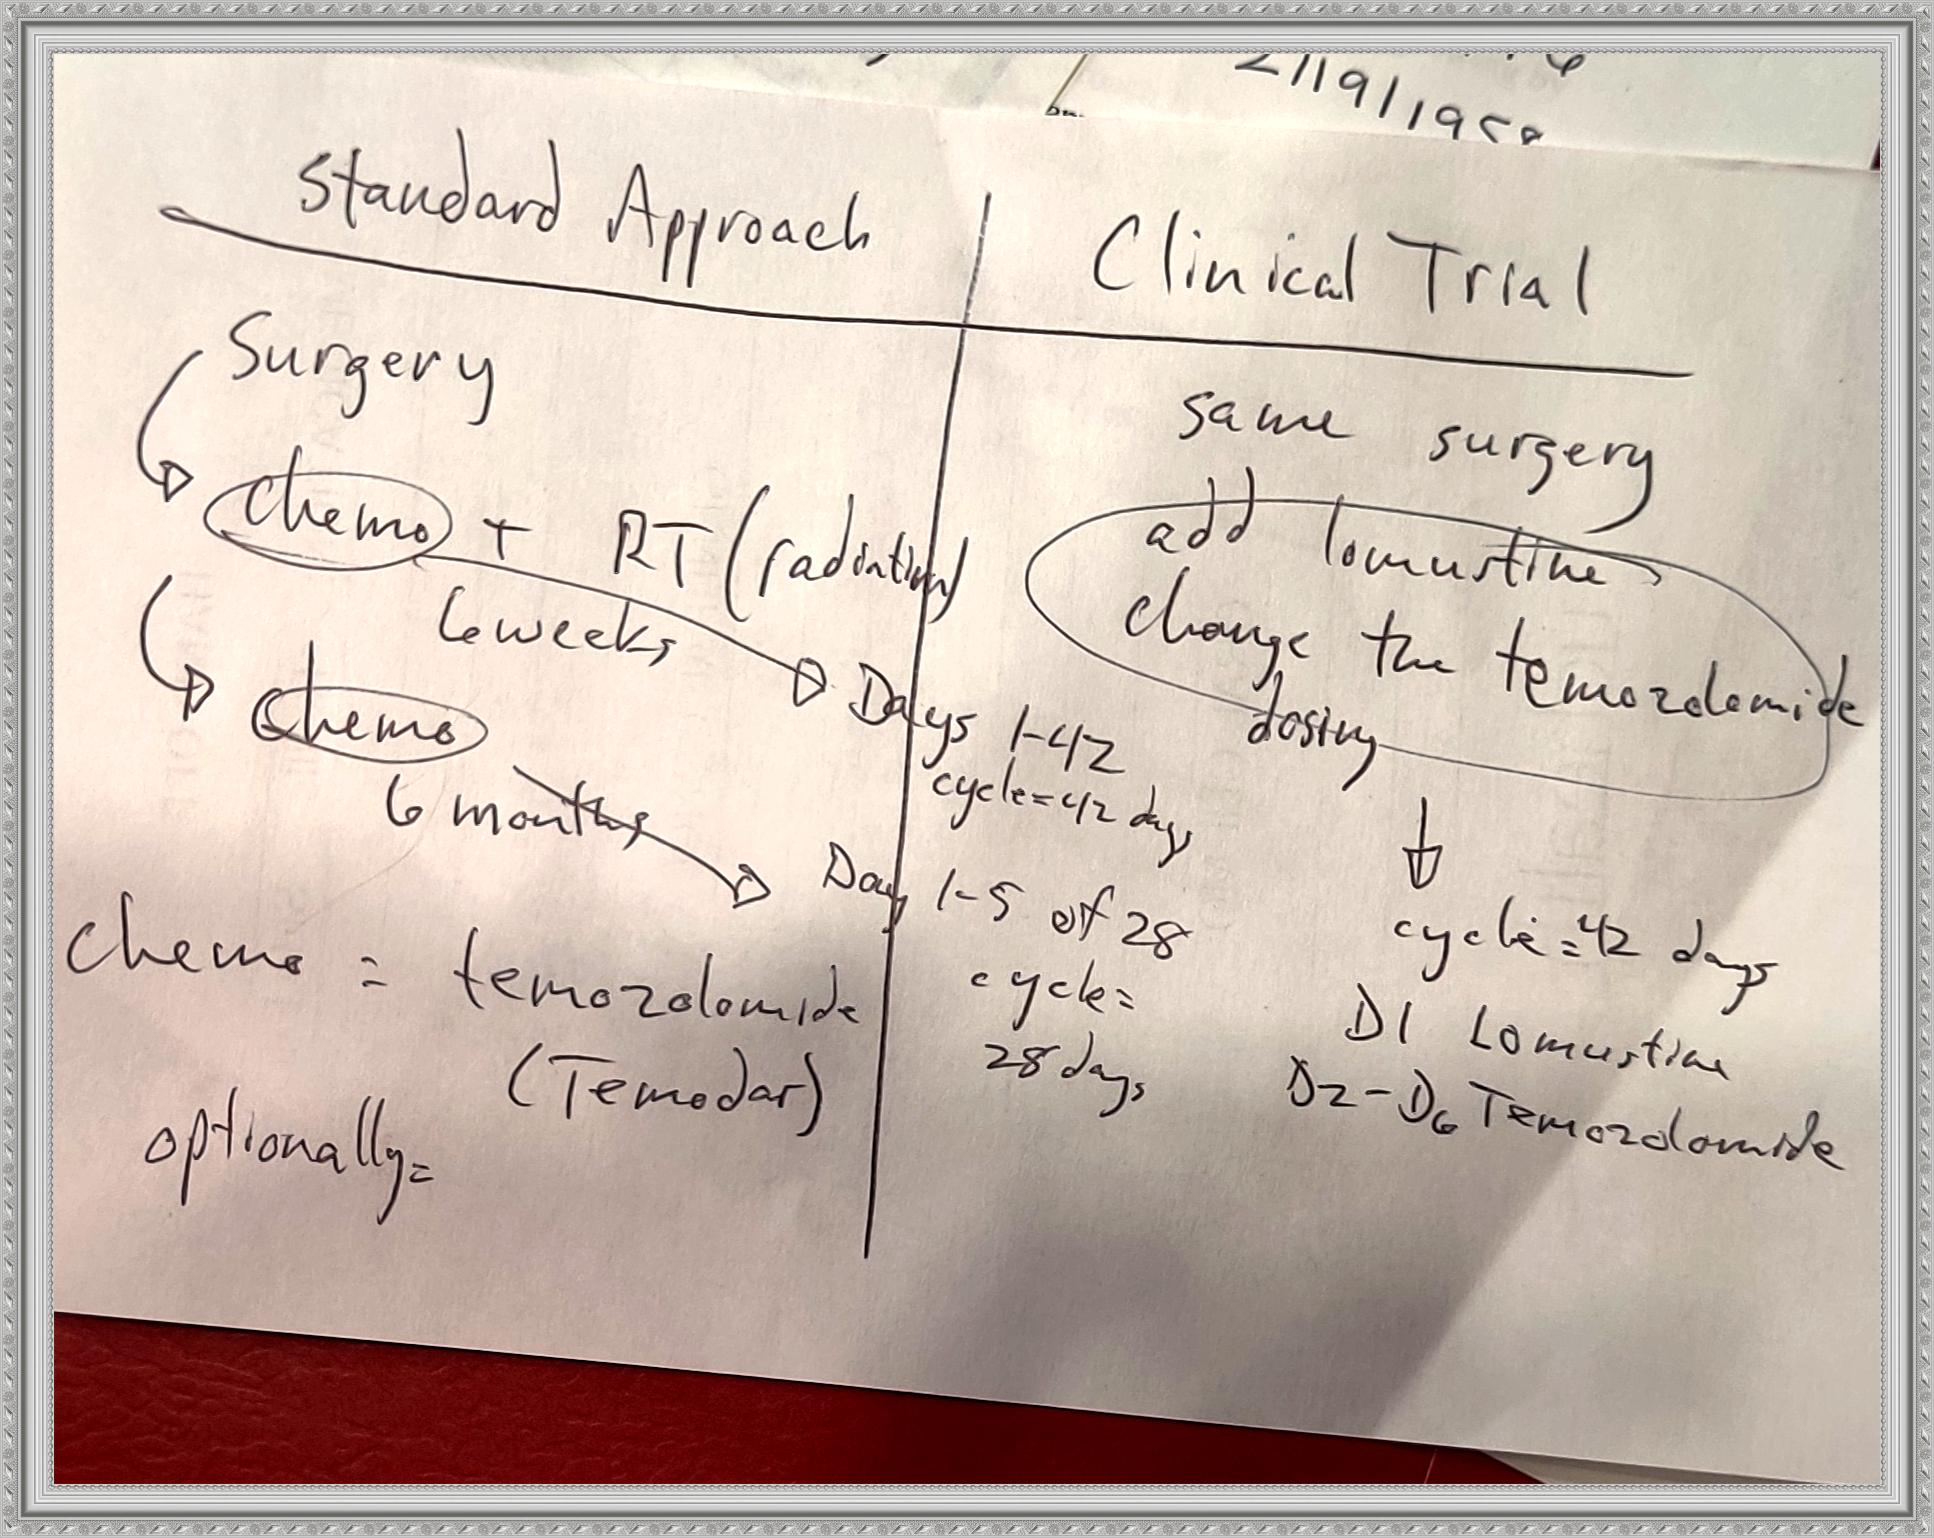 2/19/195
Standard Approach
Clinical Trial
Surgery
chemo + RT (radiation)
6 weeks
Days 1-42
cycle=42 days
chemo
6 months
Day 1-5 of 28
cycle=
28 days
chemo = temozolomide
(Temodar)
optionally=
same surgery
add lomustine
change the temozolomide
dosing
cycle=42 days
D1 Lomustine
D2-D6 Temozolomide